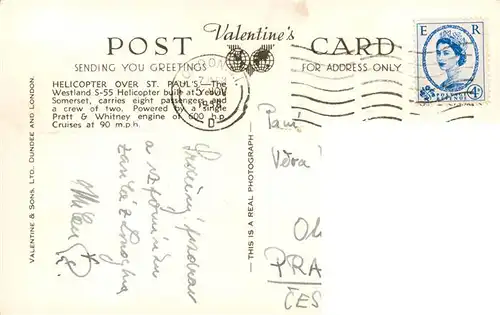 Valentine's
POST CARD
SENDING YOU GREETINGS
FOR ADDRESS ONLY
HELICOPTER OVER ST. PAUL'S.—The
Westland S-55 Helicopter built at Yeovil
Somerset, carries eight passengers and
a crew of two. Powered by a single
Pratt & Whitney engine of 600 h.p.
Cruises at 90 m.p.h.
VALENTINE & SONS, LTD., DUNDEE AND LONDON.
—THIS IS A REAL PHOTOGRAPH—
E R
4D
Srdečný pozdrav
a vzpomínku
zasílá z Londýna
Paní
Věra
PRA
ČES